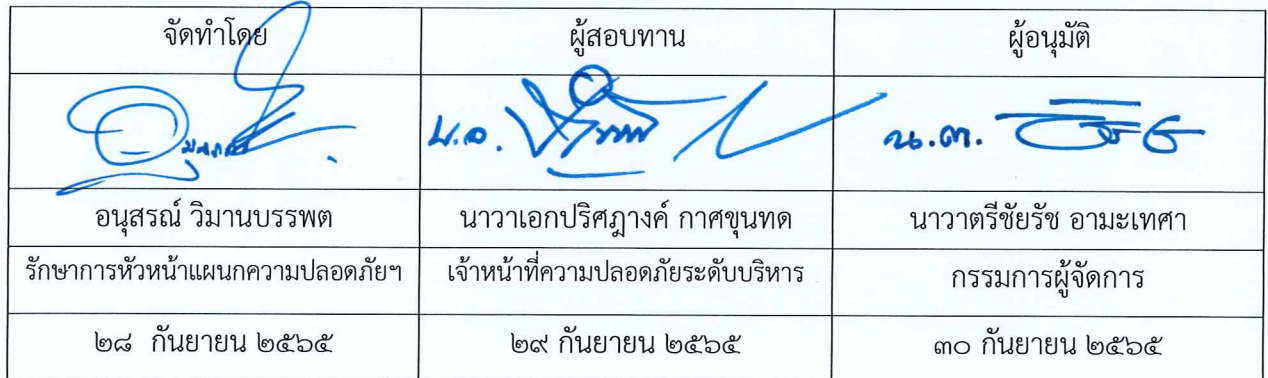 จัดทำโดย ผู้สอบทาน ผู้อนุมัติ
น.อ. น.ต.
อนุสรณ์ วิมานบรรพต นาวาเอกปริศฎางค์ กาศขุนทด นาวาตรีชัยรัช อามะเทศา
รักษาการหัวหน้าแผนกความปลอดภัยฯ เจ้าหน้าที่ความปลอดภัยระดับบริหาร กรรมการผู้จัดการ
๒๘ กันยายน ๒๕๖๕ ๒๙ กันยายน ๒๕๖๕ ๓๐ กันยายน ๒๕๖๕